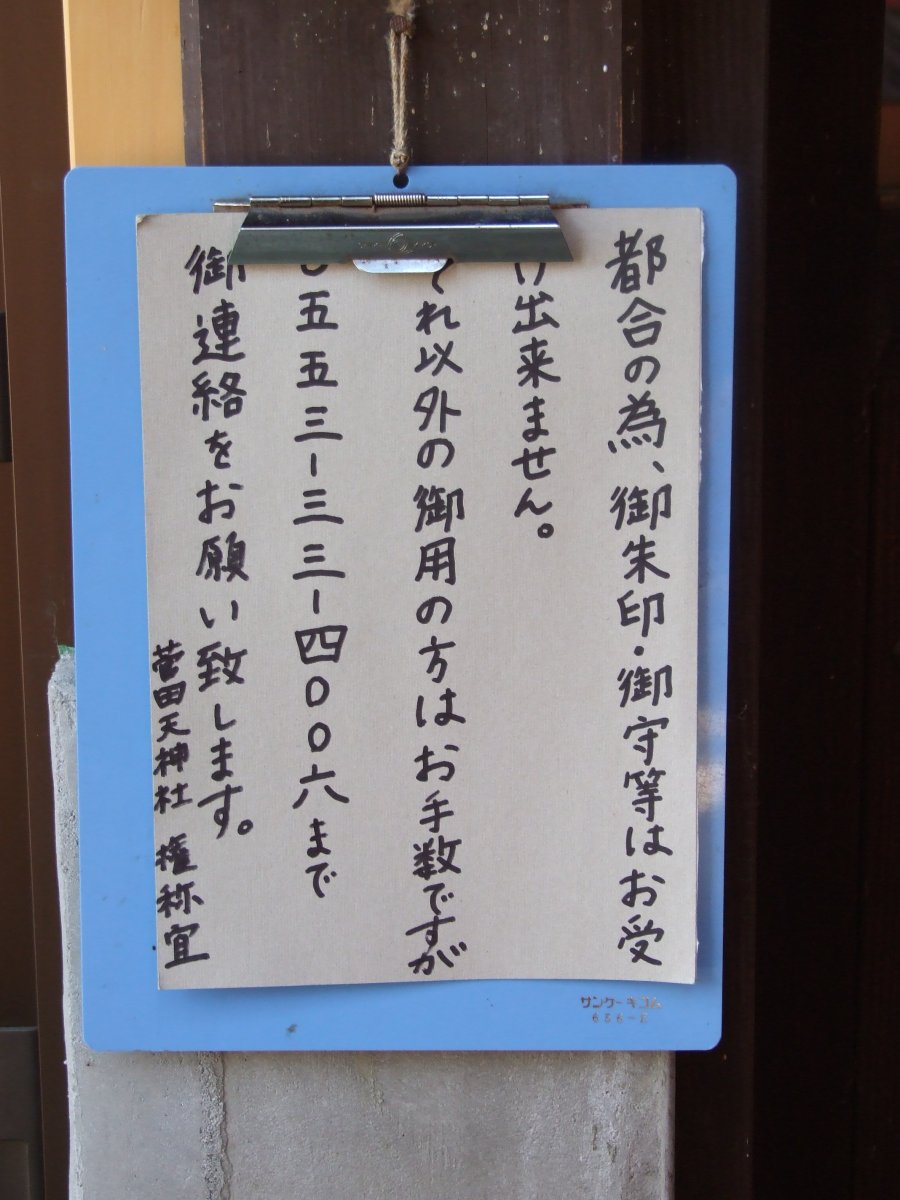 都合の為、御朱印・御守等はお受
け出来ません。
それ以外の御用の方はお手数ですが
〇五五三-三三-四〇〇六まで
御連絡をお願い致します。
菅田天神社 権祢宜
サンケーキコム